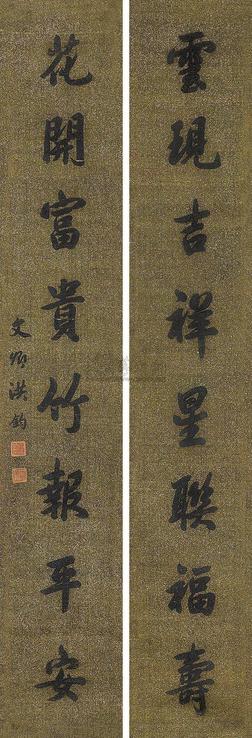 雲現吉祥星聯福壽
花開富貴竹報平安
文卿洪鈞